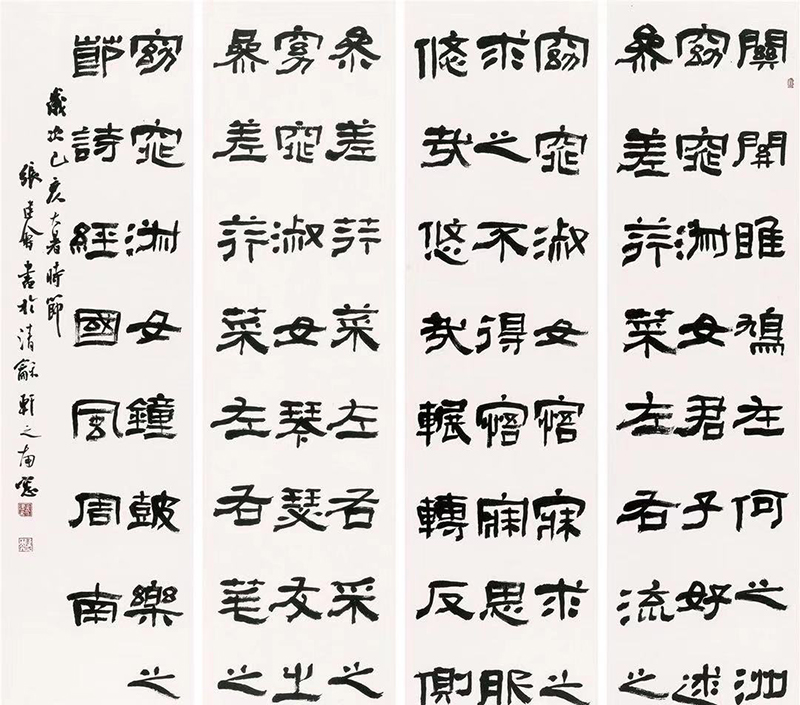 關關雎鳩在何之洲
窈窕淑女君子好逑
參差荇菜左右流之
窈窕淑女寤寐求之
求之不得寤寐思服
悠哉悠哉輾轉反側
參差荇菜左右采之
窈窕淑女琴瑟友之
參差荇菜左右芼之
窈窕淑女鐘鼓樂之
節詩經國風周南
歲次己亥大暑時節
張建會書於清龢軒之南窗